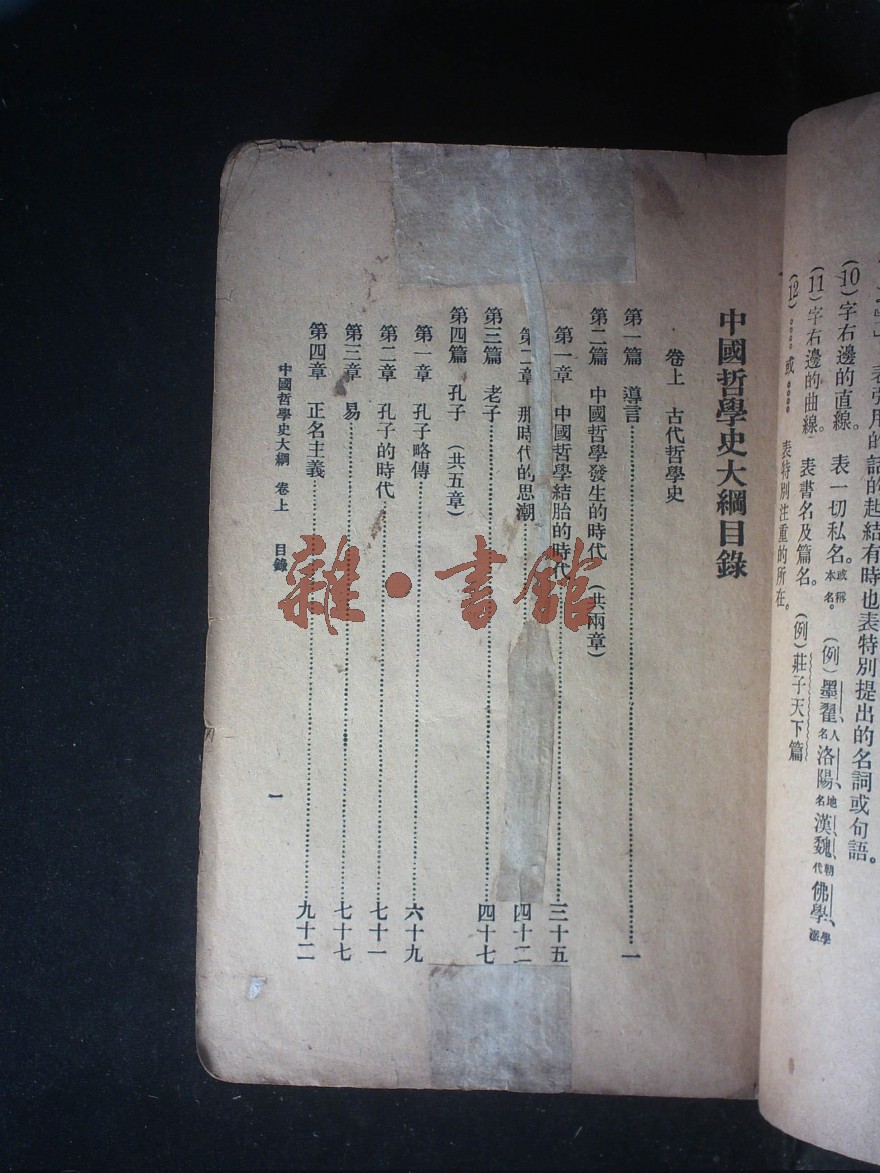 表引用的話的起結有時也表特別提出的名詞或句語。
(10)字右邊的直線。表一切私名。或稱本名。(例)墨翟人名洛陽、地名漢魏、朝代佛學、學派
(11)字右邊的曲線。表書名及篇名。(例)莊子天下篇
(12)。。。。或、、、、表特別注重的所在。
中國哲學史大綱目錄
卷上 古代哲學史
第一篇 導言……一
第二篇 中國哲學發生的時代 (共兩章)
第一章 中國哲學結胎的時代……三十五
第二章 那時代的思潮……四十二
第三篇 老子……四十七
第四篇 孔子 (共五章)
第一章 孔子略傳……六十九
第二章 孔子的時代……七十一
第三章 易……七十七
第四章 正名主義……九十二
中國哲學史大綱 卷上 目錄
一
雜·書館